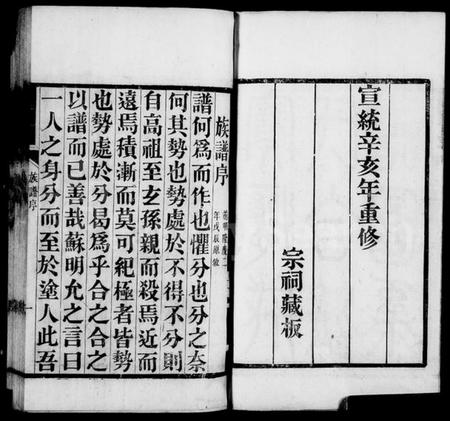 宣統辛亥年重修
宗祠藏板
族譜序
明隆慶二
年戊辰原
譜何爲而作也懼分也分之奈
何其勢也勢處於不得不分則
自高祖至玄孫親而殺焉近而
遠焉積漸而莫可紀極者皆勢
也勢處於分曷爲乎合之合之
以譜而已善哉蘇明允之言曰
一人之身分而至於塗人此吾
族譜序
一